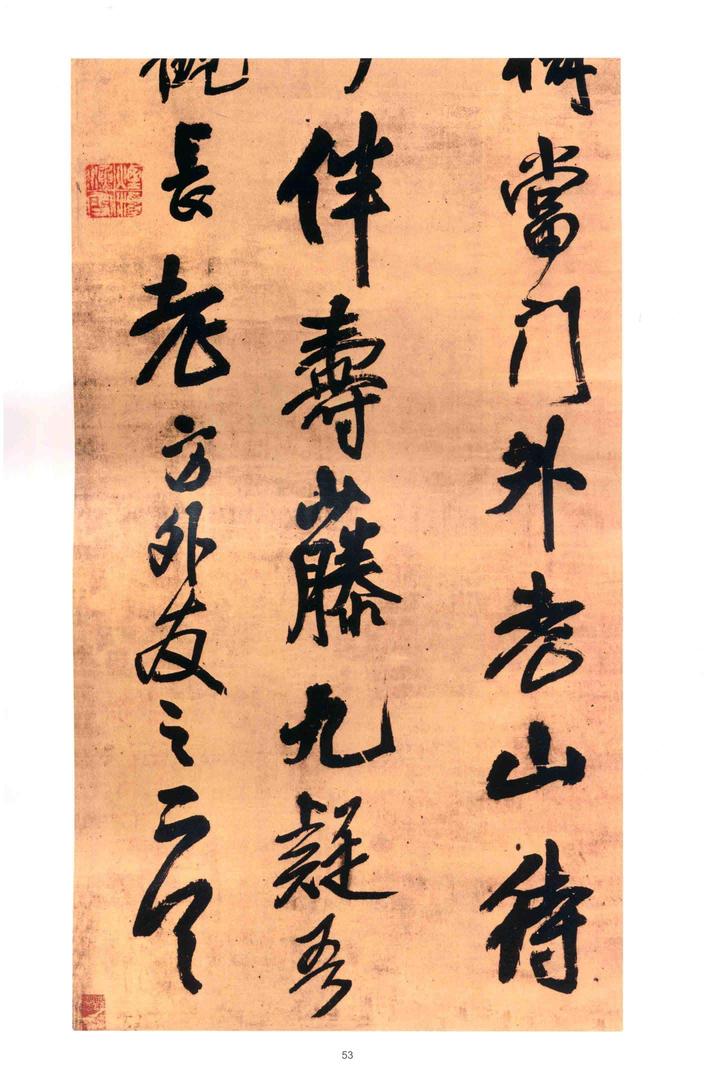 當門外老山待
伴壽藤九疑吾
長老方外友之
53